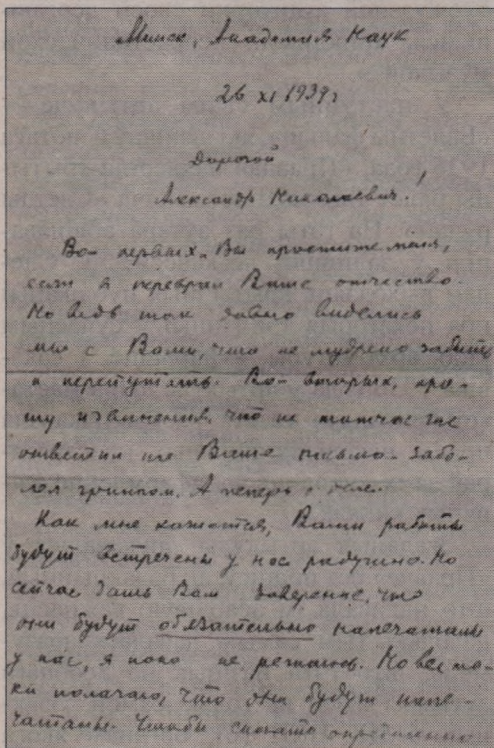 Минск, Академия Наук
26 XI 1939 г
Дорогой
Александр Николаевич!
Во-первых, Вы простите меня,
если я переврал Ваше отчество.
Но ведь так давно виделись
мы с Вами, что не мудрено забыть
и перепутать. Во-вторых, про-
шу извинения, что не тотчас же
ответил на Ваше письмо – забо-
лел гриппом. А теперь о деле.
Как мне кажется, Ваши работы
будут встречены у нас радушно. Но
сейчас дать Вам заверение, что
они будут обязательно напечатаны
у нас, я пока не решаюсь. Но все та-
ки полагаю, что они будут напе-
чатаны. Чтобы сказать определенно